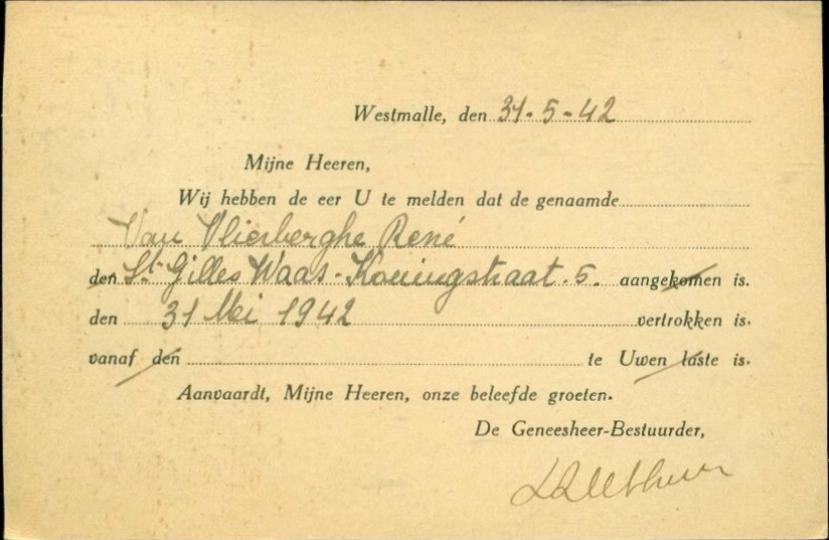 Westmalle, den 31-5-42
Mijne Heeren,
Wij hebben de eer U te melden dat de genaamde
Van Vlierberghe René
den St. Gilles Waas - Koningstraat. 5. aangekomen is.
den 31 Mei 1942 vertrokken is.
vanaf den te Uwen laste is.
Aanvaardt, Mijne Heeren, onze beleefde groeten.
De Geneesheer-Bestuurder,